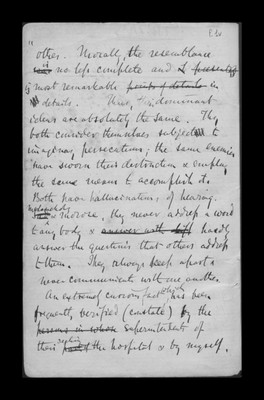 "
other. Morally, the resemblance
is no less complete and
is most remarkable points of details in
details. Thus, their dominant
ideas are absolutely the same. They
both consider themselves subject to
imaginary persecutions; the same enemies
have sworn their destruction & employ
the same means to accomplish it.
Both have hallucinations of hearing.
melancholy
& morose, they never address a word
to any body & answer with diff hardly
answer the questions that others address
to them. They always keep apart &
never communicate with one another.
An extremely curious fact which has been
frequently verified (constaté) by the
persons in whose superintendent of
their section
of the hospital & by myself,